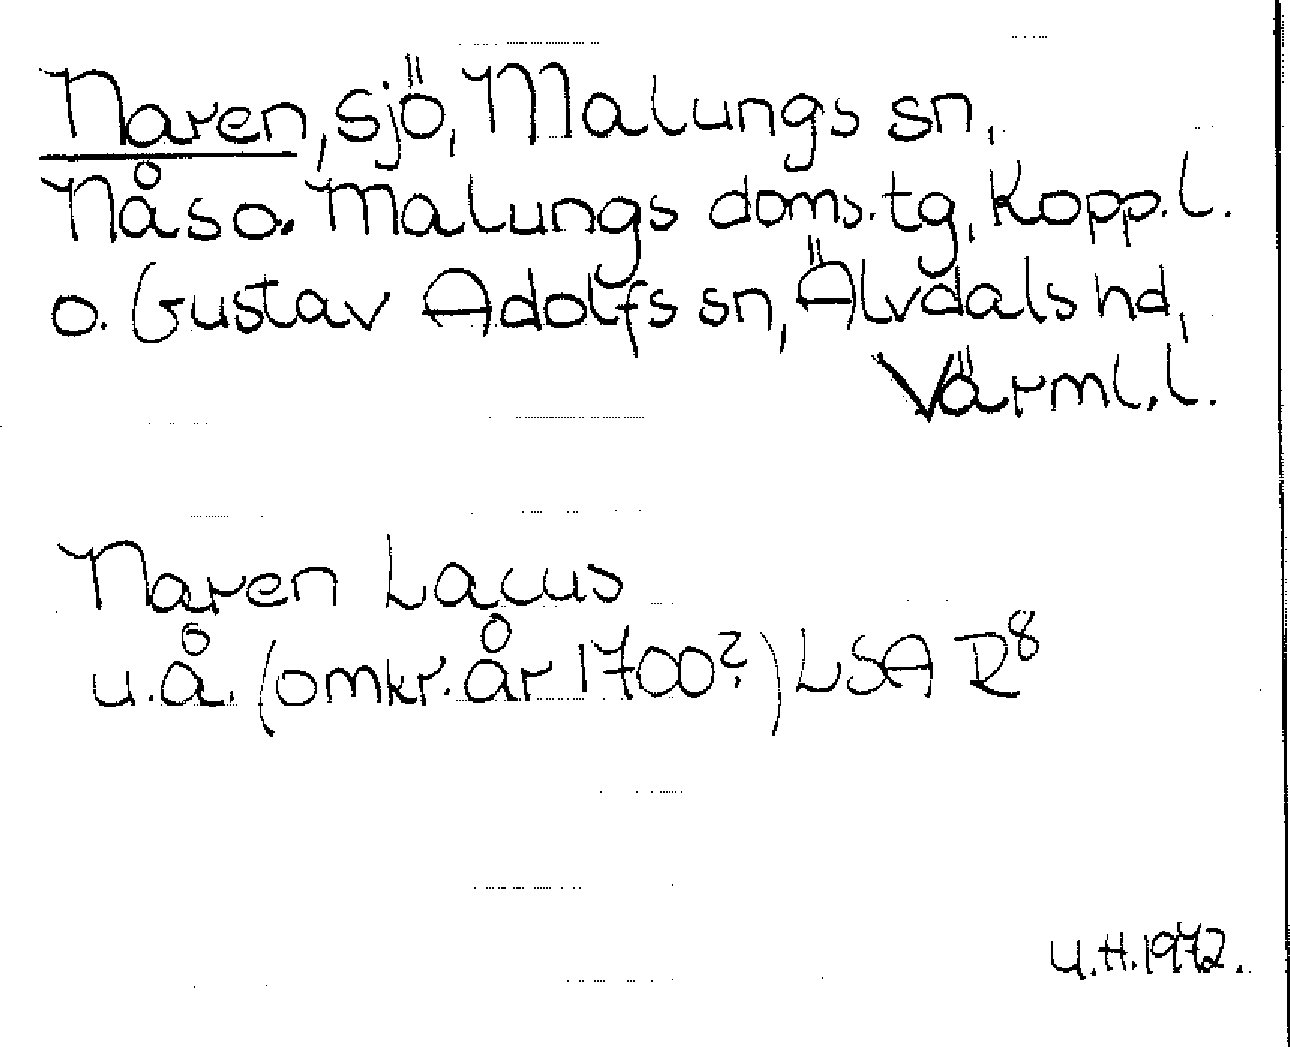 Naren, sjö, Malungs sn,
Nås o. Malungs doms.tg, Kopp.l.
o. Gustav Adolfs sn, Älvdals hd,
Värml.l.
Naren Lacus
u.å. (omkr. år 1700?) LSA R8
U.H. 1972.